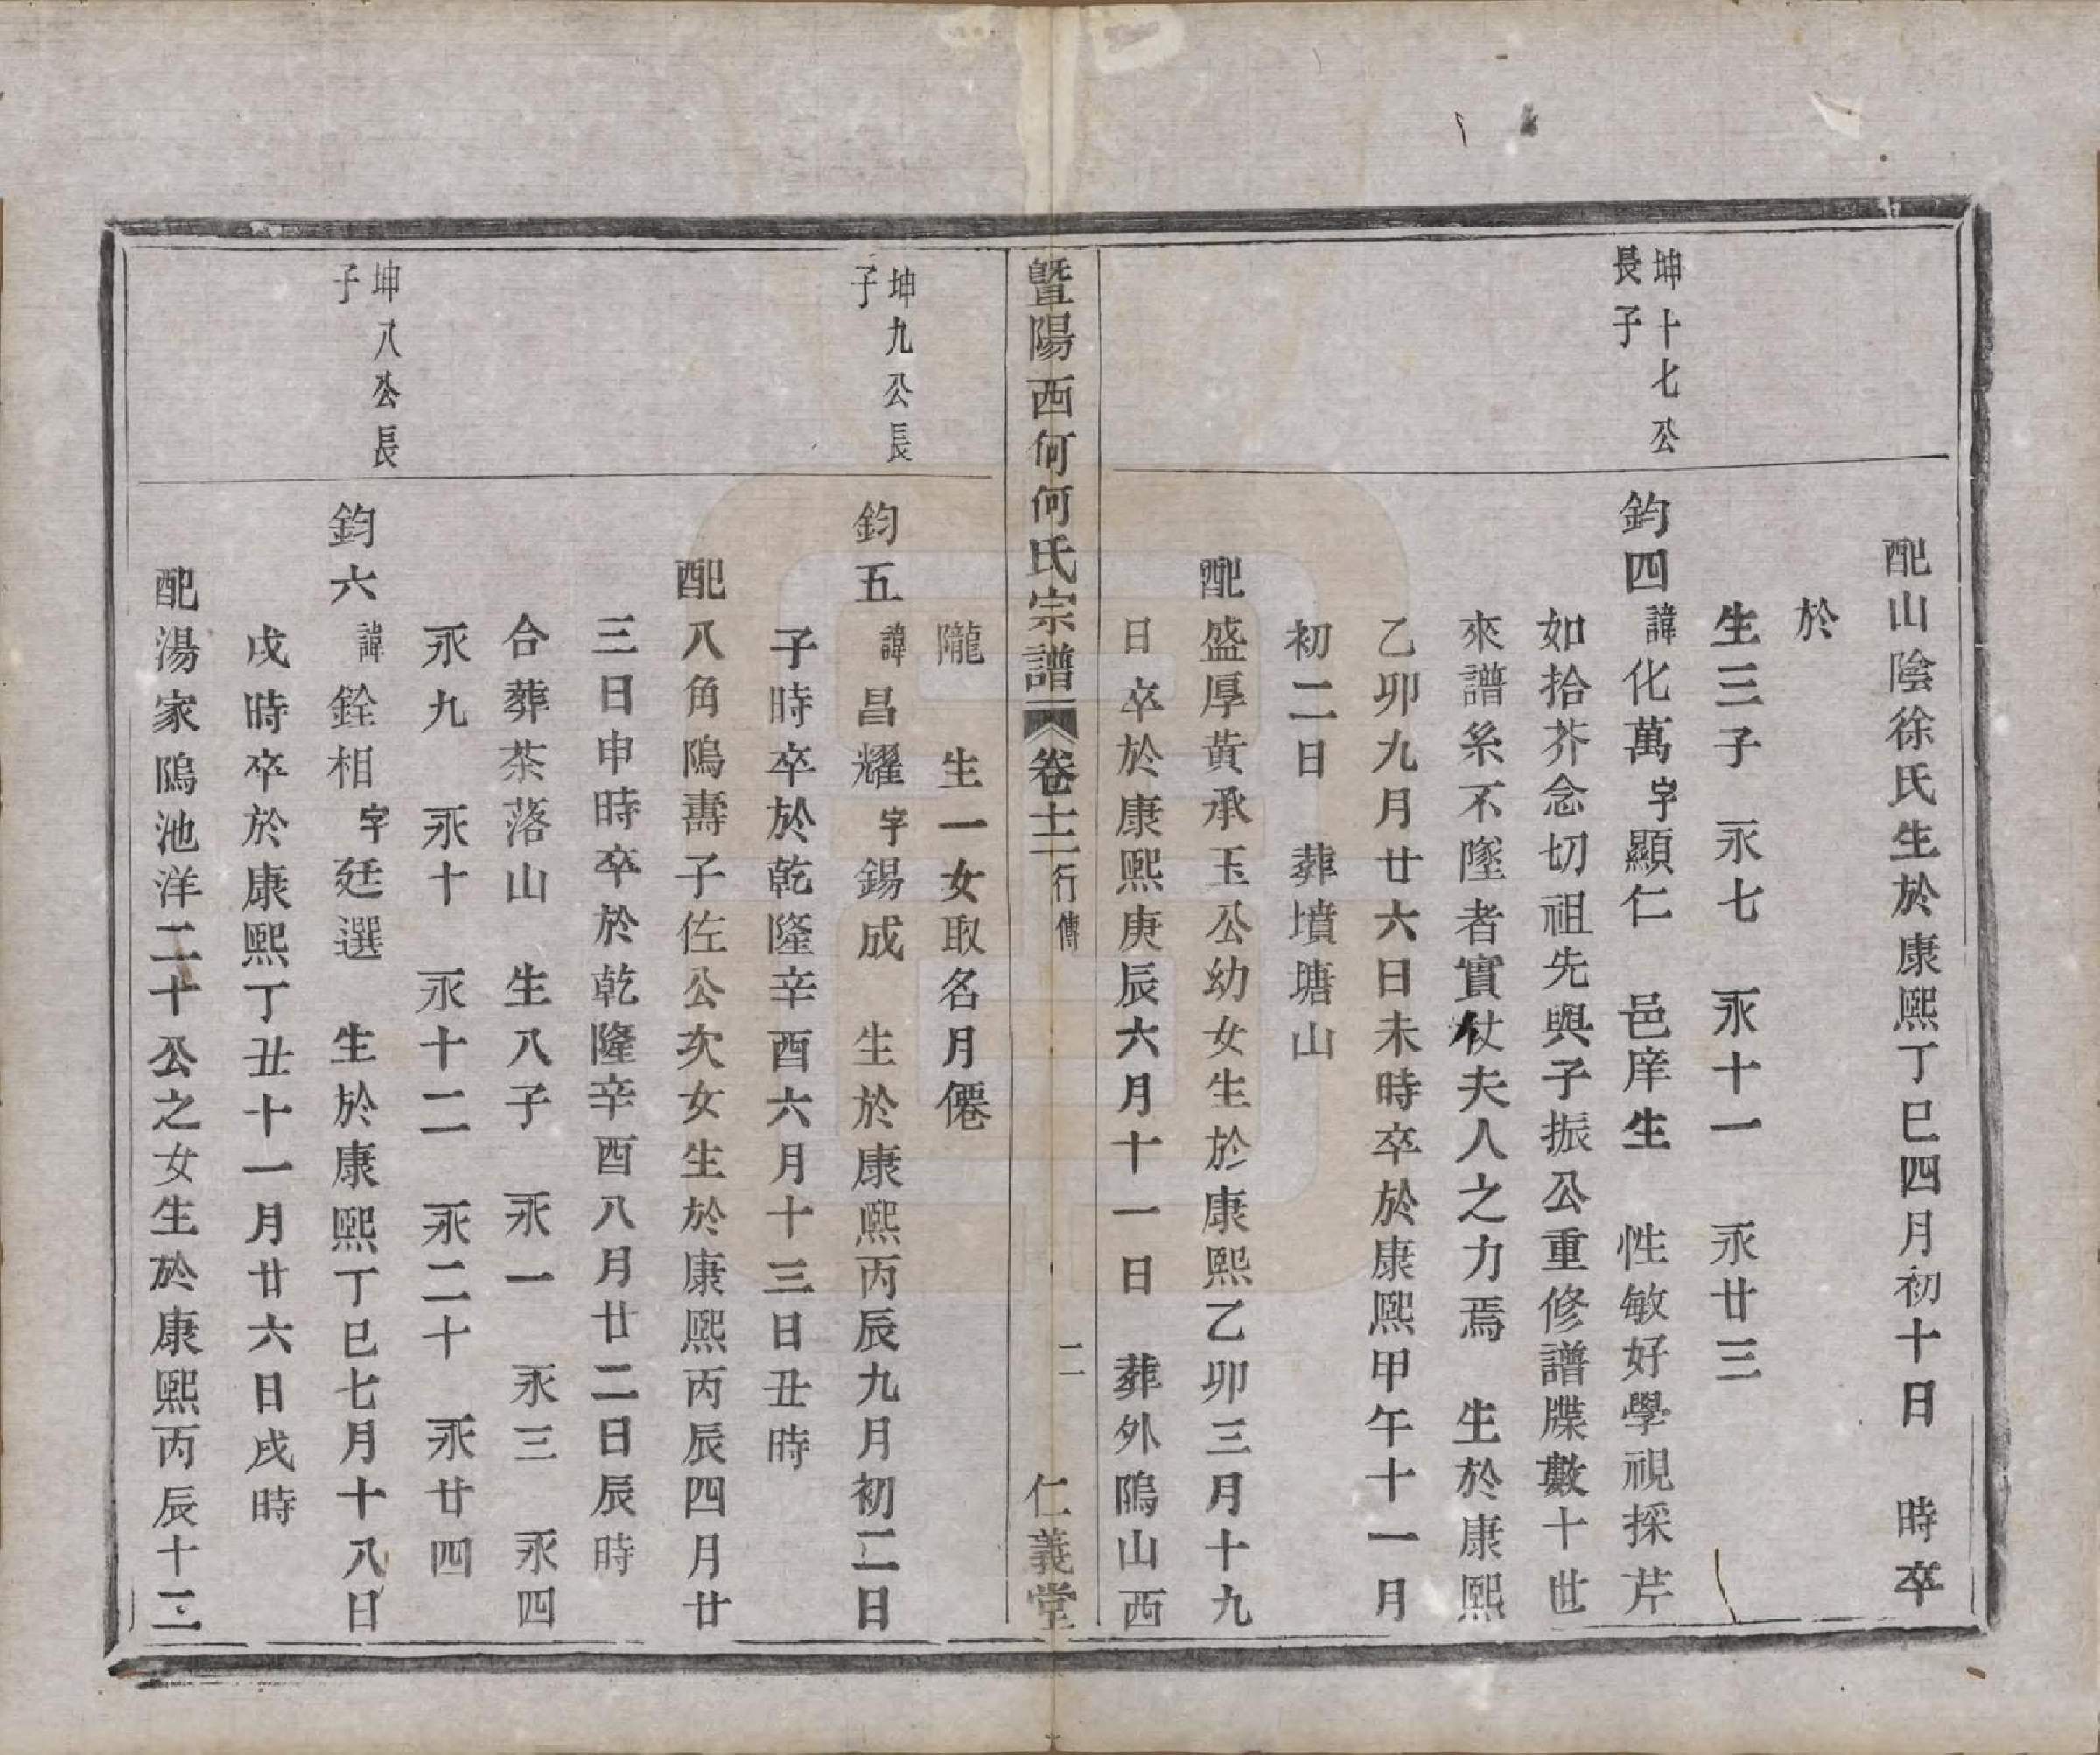 配山陰徐氏生於康熙丁巳四月初十日 時卒
於
生三子 永七 永十一 永廿三
坤十七公
長子
鈞四 諱化萬 字顯仁 邑庠生 性敏好學視採芹
如拾芥念切祖先與子振公重修譜牒數十世
來譜系不墜者實仗夫人之力焉 生於康熙
乙卯九月廿六日未時卒於康熙甲午十一月
初二日 葬墳塘山
配盛厚黃承玉公幼女生於康熙乙卯三月十九
日卒於康熙庚辰六月十一日 葬外隖山西
暨陽西何何氏宗譜 卷十二 行傳 二 仁義堂
隴 生一女取名月僊
坤九公長
子
鈞五 諱昌耀 字錫成 生於康熙丙辰九月初二日
子時卒於乾隆辛酉六月十三日丑時
配八角隖壽子佐公次女生於康熙丙辰四月廿
三日申時卒於乾隆辛酉八月廿二日辰時
合葬茶落山 生八子 永一 永三 永四
永九 永十 永十二 永二十 永廿四
坤八公長
子
鈞六 諱銓相 字廷選 生於康熙丁巳七月十八日
戌時卒於康熙丁丑十一月廿六日戌時
配湯家隖池洋二十公之女生於康熙丙辰十二